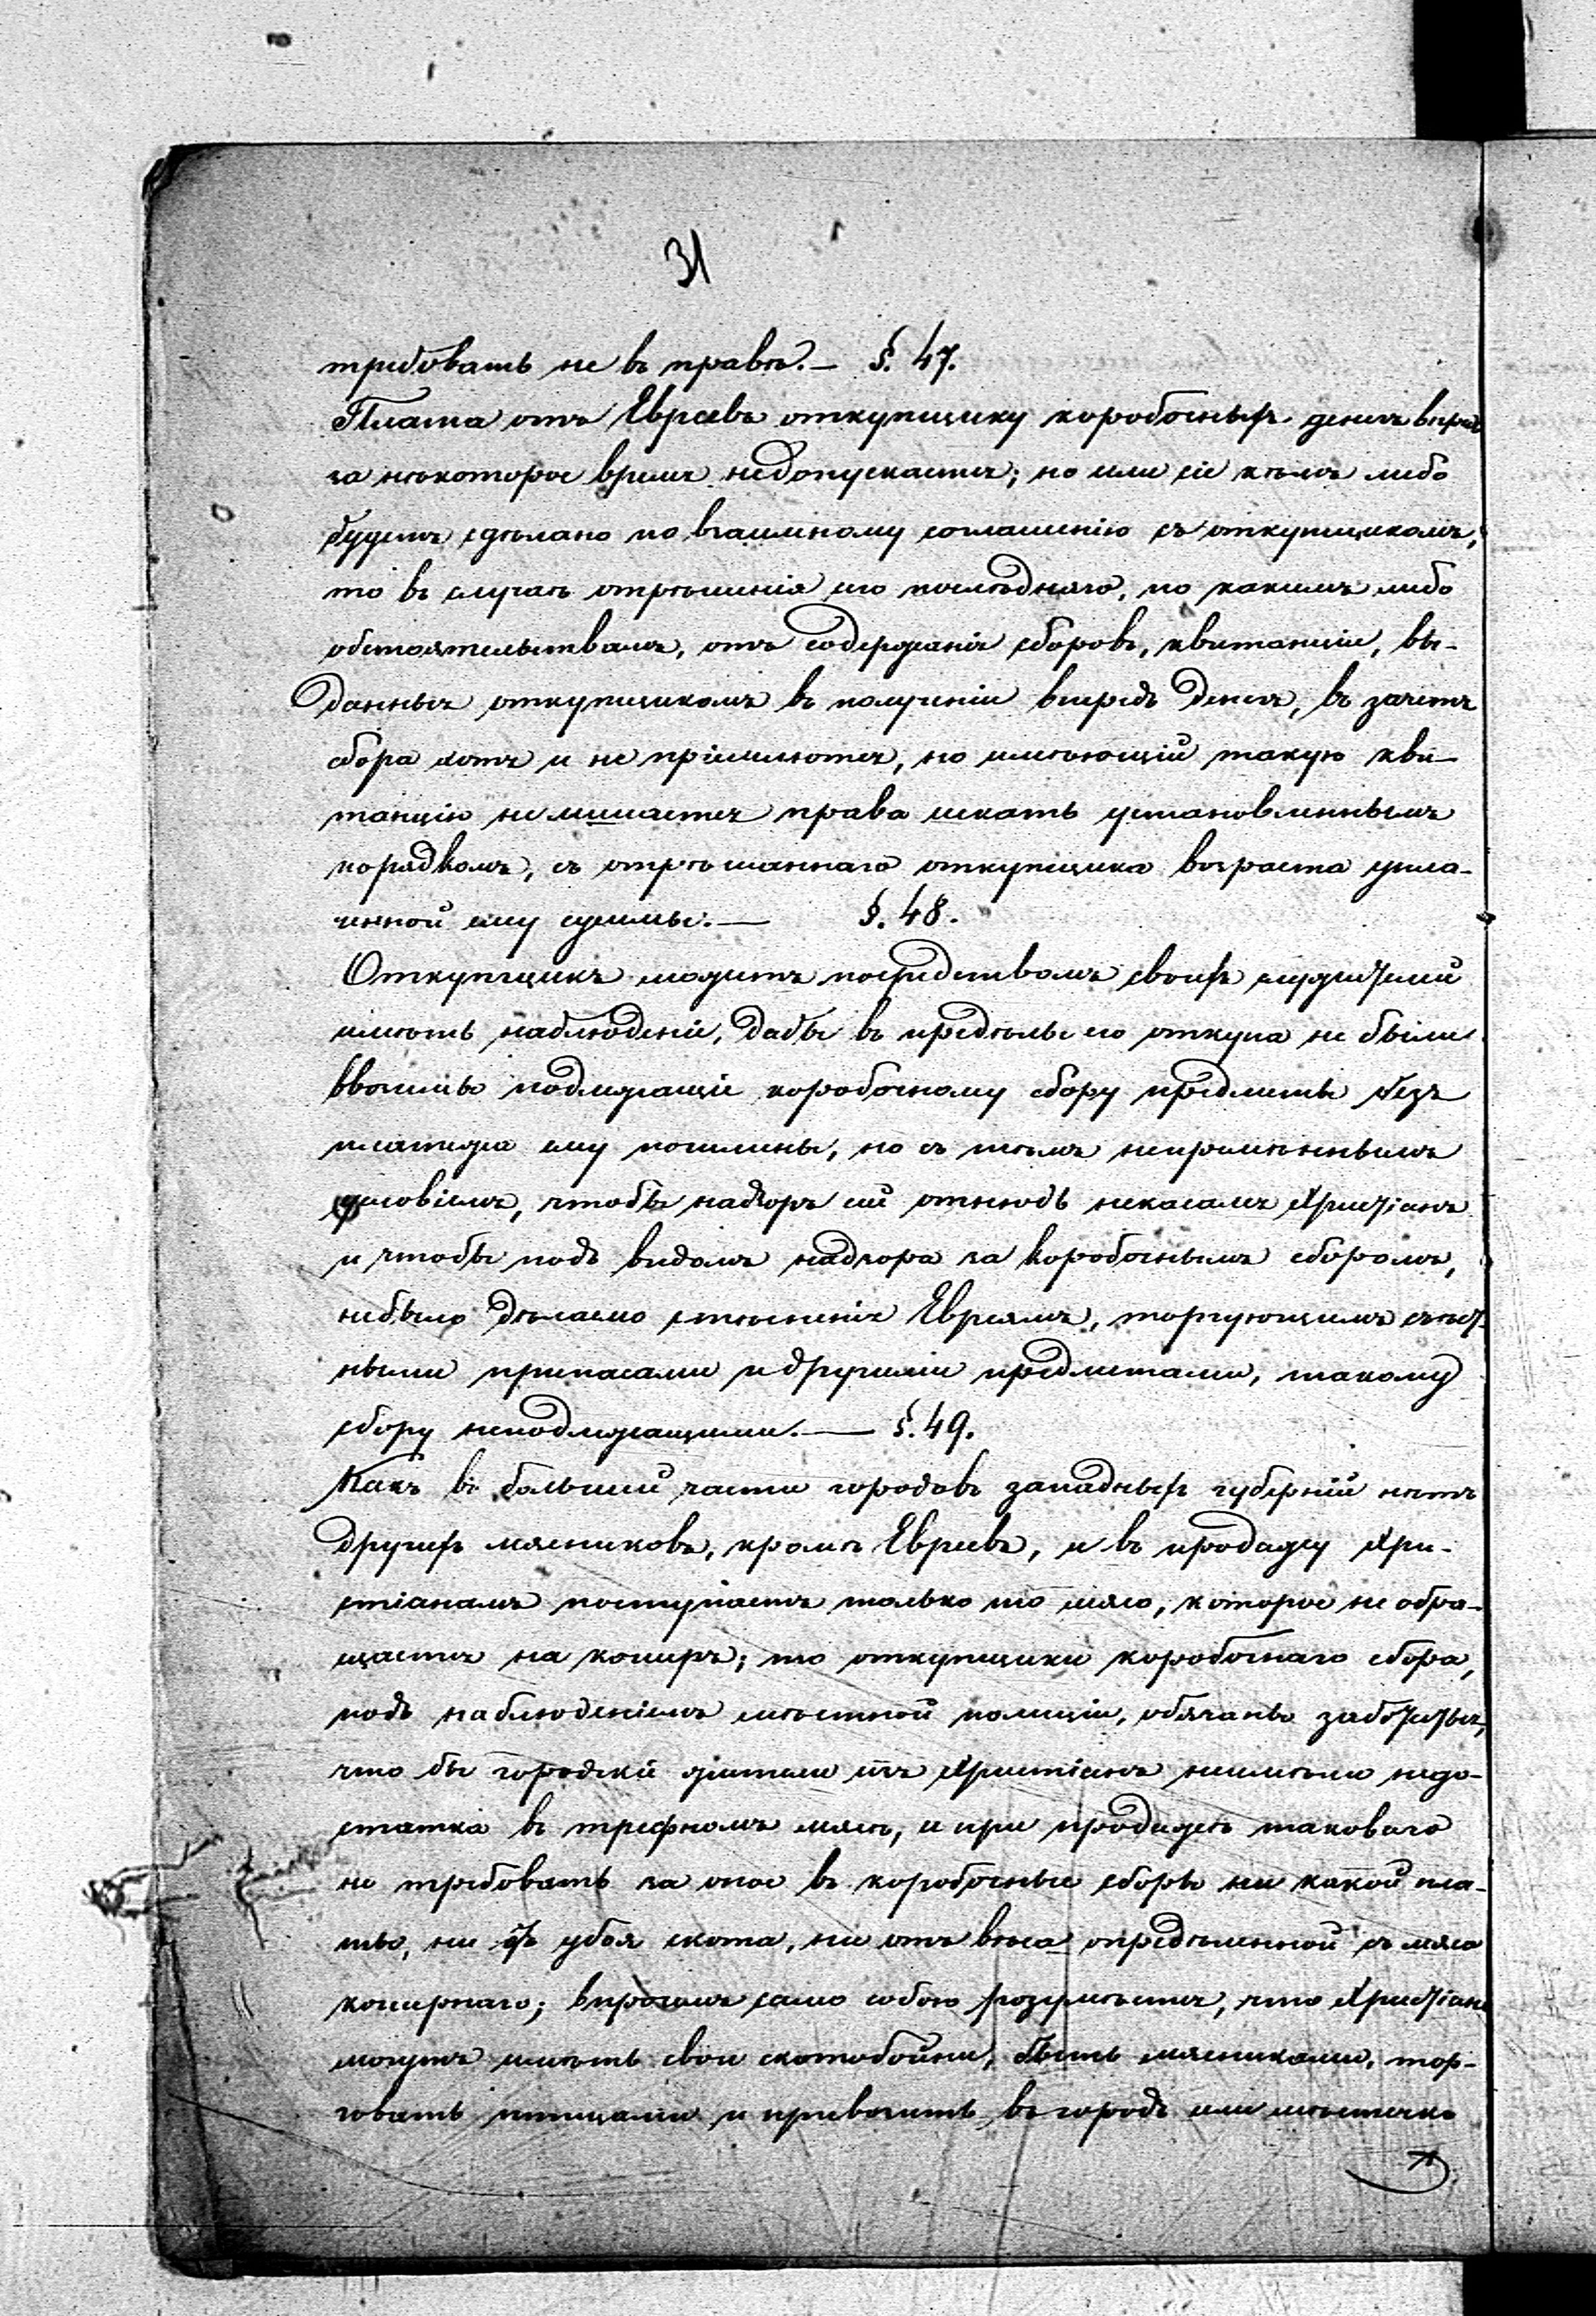 31
требовать не въ правѣ.— §. 47.
Плата отъ Евреевъ откупщику коробочныхъ денегъ впредь
за нѣкоторое время недопускается; но или сіе кѣмъ либо
будетъ сдѣлано по взаимному соглашенію съ откупщикомъ,
то въ случаѣ отрѣшенія его послѣдняго, по какимъ либо
обстоятельствамъ, отъ содержанія сборовъ, квитанціи, вы-
данныя откупщикомъ въ полученіи впередъ денегъ, въ зачетъ
сбора хотя и не пріемлются, но имѣющій такую кви-
танцію не лишается права искать установленнымъ
порядкомъ, съ отрѣшаннаго откупщика возраста упла-
ченной ему суммы.— §. 48.
Откупщикъ можетъ посредствомъ своихъ служителей
имѣть наблюденіе, дабы въ предѣлы его откупа не были
ввозимы подлежащіе коробочному сбору предметы безъ
платежа ему пошлины, но съ тѣмъ непремѣннымъ
условіемъ, чтобы надзоръ сей отнюдь некасался Христіанъ
и чтобы подъ видомъ надзора за коробочнымъ сборомъ,
небыло дѣлаемо стѣсненія Евреямъ, торгующимъ съѣст-
ными припасами и другими предметами, такому
сбору неподлежащими.— §. 49.
Какъ въ большей части городовъ западныхъ губерній нѣтъ
другихъ мясниковъ, кромѣ Евреевъ, и въ продажу Хри-
стіанамъ поступаетъ только то мясо, которое не обра-
щается на кошеръ; то откупщики коробочнаго сбора,
подъ наблюденіемъ мѣстной полиціи, обязаны заботиться,
что бы городскіе жители изъ Христіанъ неимѣли недо-
статка въ трефномъ мясѣ, и при продажѣ таковаго
не требовать за оное въ коробочные сборы ни какой пла-
ты, ни отъ убоя скота, ни отъ вѣса опредѣленной съ мяса
кошернаго; впрочемъ само собою розумѣется, что Христіане
могутъ имѣть свои скотобойни, быть мясниками, тор-
говать птицами и привозить въ городъ или мѣстечко